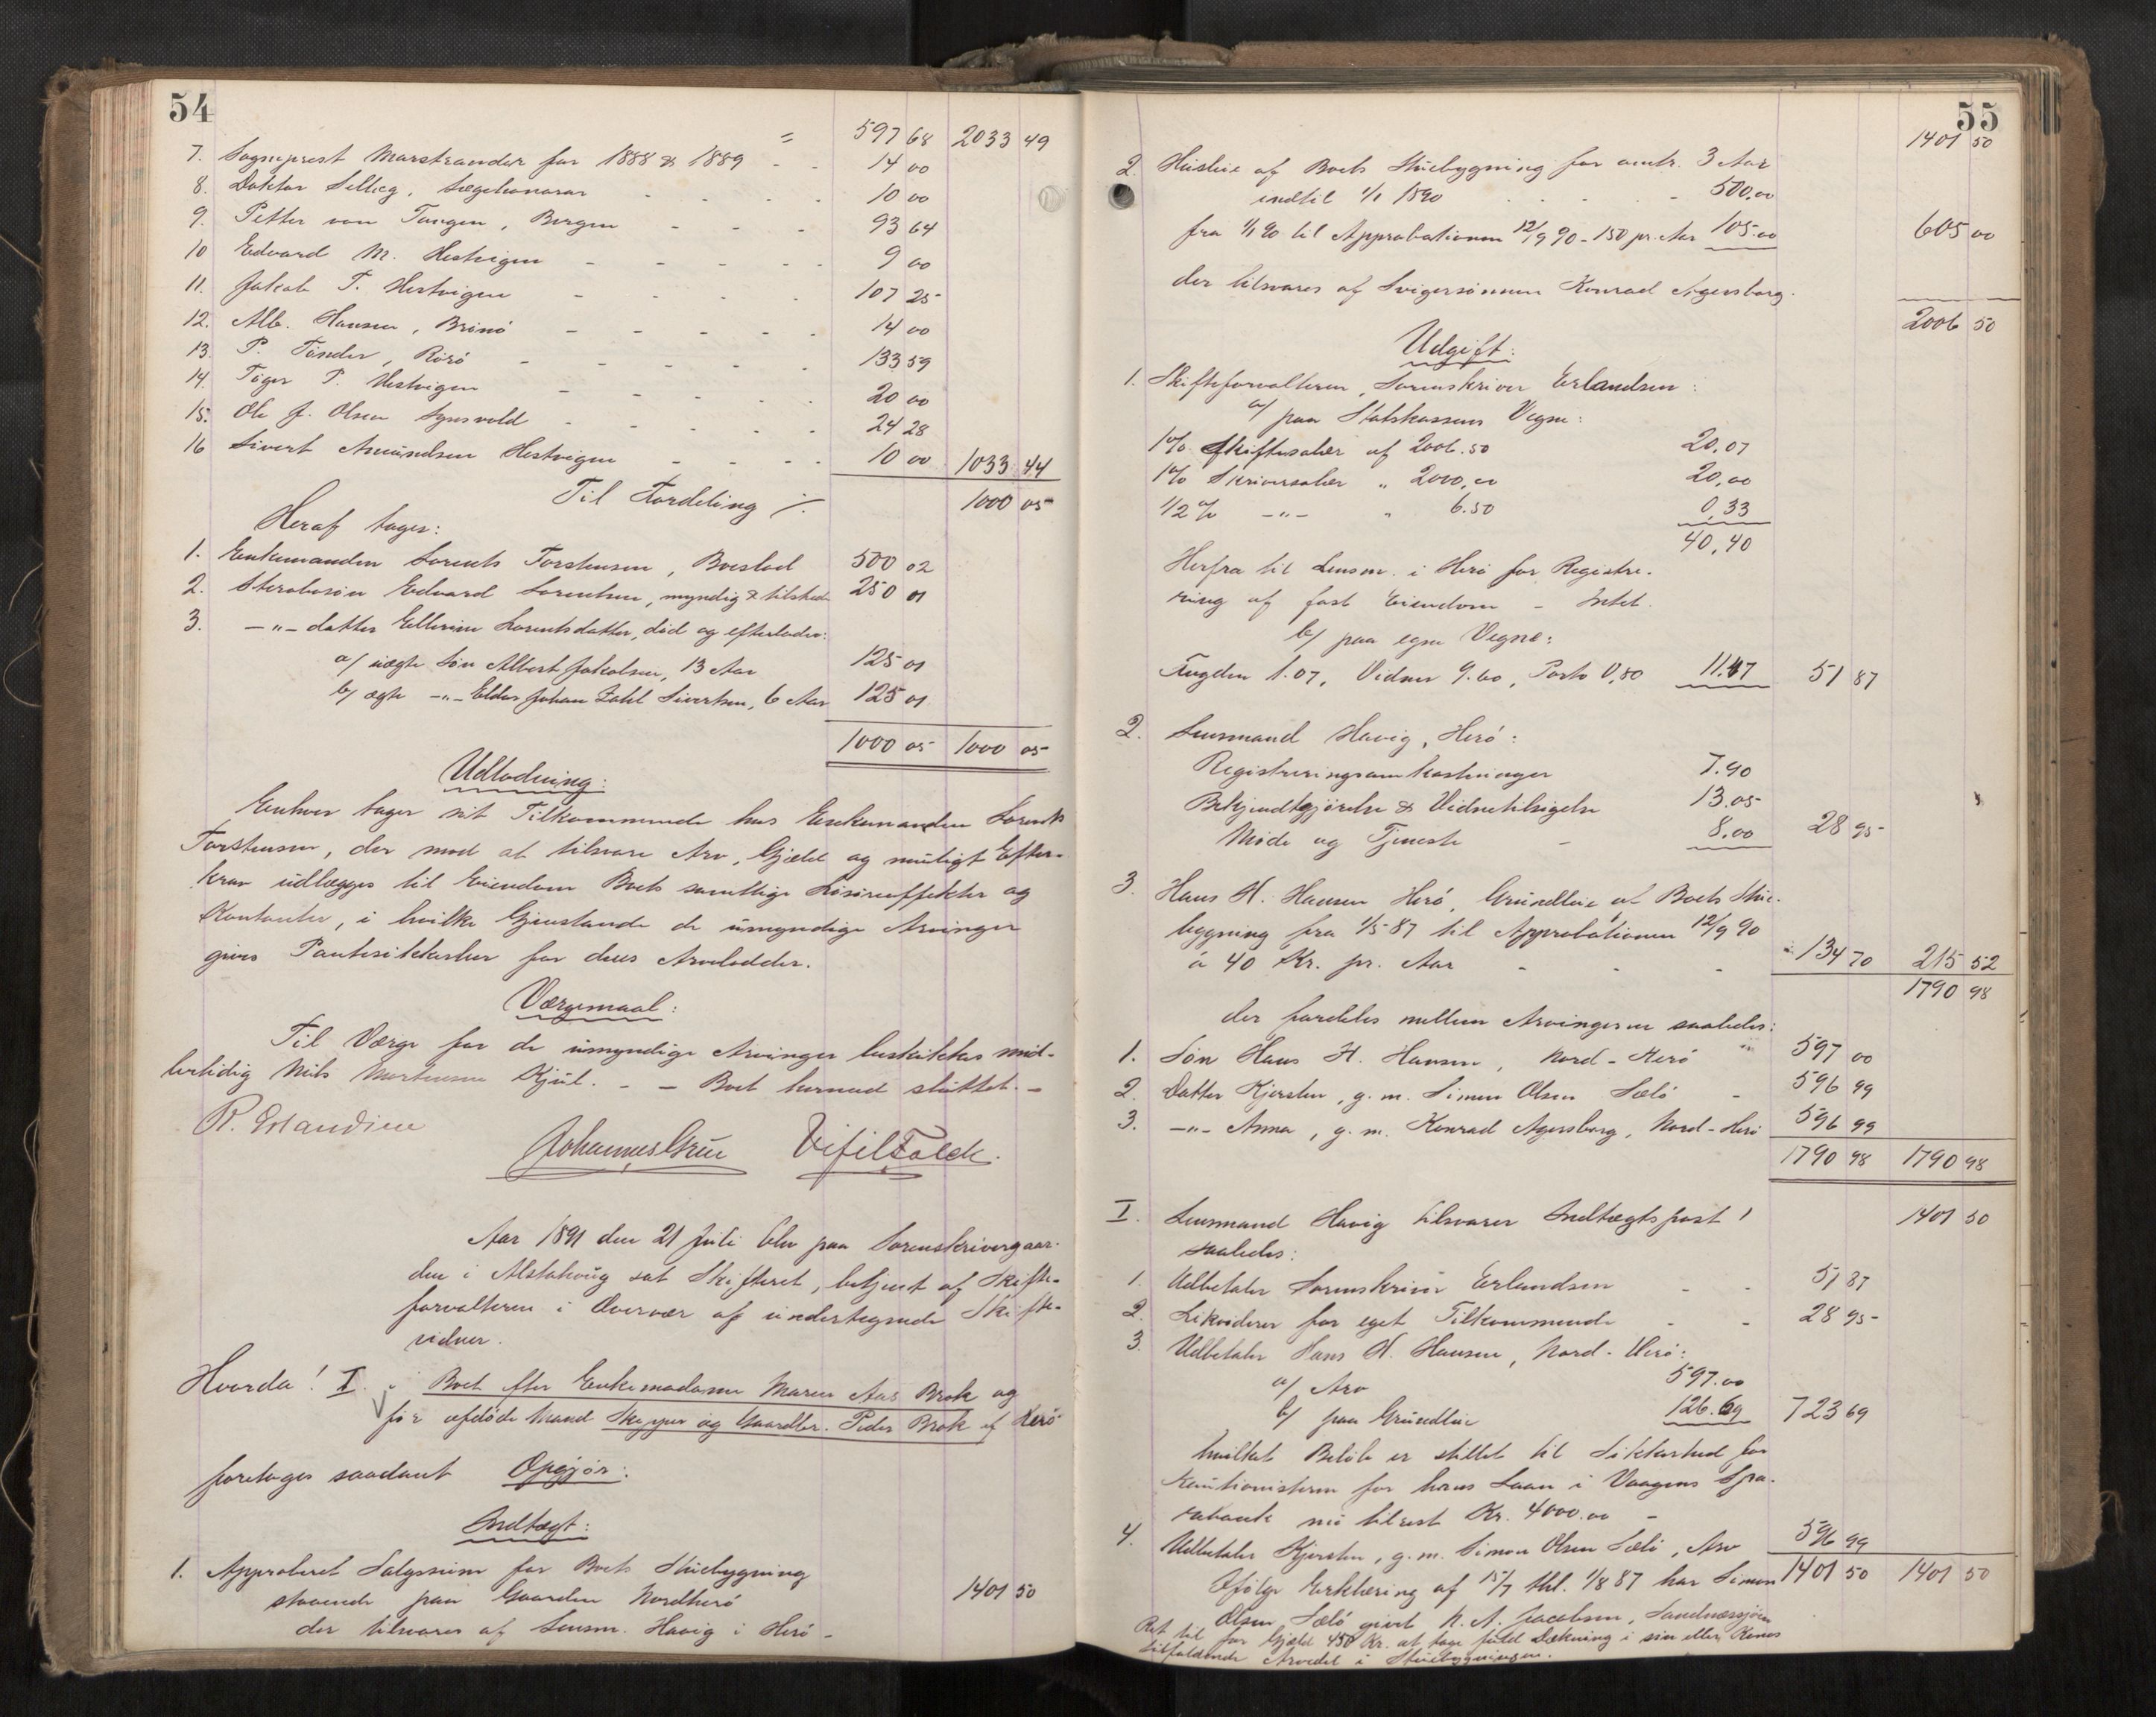 54
= 597 68 2033 49
7. Sogneprest Marstrander for 1888 & 1889 - - 14 00
8. Doktor Selbeg, Lægehonorar - - - 10 00
9. Petter von Tangen, Bergen - - - 93 64
10 Edvard M. Hestvigen - - - - 9 00
11. Jakob T. Hestvigen - - - 107 25
12. Alb. Hansen, Brinö - - - - 14 00
13. P. Tönder, Rörö - - - - - 133 59
14. Töger P. Hestvigen - - - - 20 00
15. Ole J. Olsen - - - - 24 28
16 Sivert Amundsen Hestvigen - - - - 10 00 1033 44
Til Fordeling ./. 1000 05
Heraf tager:
1. Enkemanden Lorents Torstensen, Boeslod 500 02
2. Sterbosön Edvard Lorentsen, myndig & tilstede 250 01
3. -"- datter Ellerine Lorentsdatter, död og efterlader:
a/ uægte Sön Albert Jakobsen, 13 Aar 125 01
b/ ægte -"- Eldor Johan Zahl Sivertsen, 6 Aar 125 01
1000 05 1000 05
Udlodning:
Enhver tager sit Tilkommende hos Enkemanden Lorents
Torstensen, der mod at tilsvare Arv, Gjæld og muligt Efter-
krav udlægges til Eiendom Boets samtlige Lösöreeffekter og
Kontanter, i hvilke Gjenstande de umyndige Arvinger
gives Pantesikkerhed for deres Arvelodder.
Værgemaal:
Til Værge for de umyndige Arvinger beskikkes mid-
lertidig Nils Mortensen Kjül. - - Boet hermed sluttet. -
R. Erlandsen
Johannes Grüe Vifil Falck.
Aar 1891 den 21 Juli blev paa Sorenskrivergaar-
den i Alstahoug sat Skifteret, betjent af Skifte-
forvalteren i Overvær af undertegnede Skifte-
vidner.
Hvorda! I. i Boet efter Enkemadame Maren Aas Brok og
för afdöde Mand Skipper og Gaardbr. Peder Brok af Herö
foretages saadant Opgjör:
Indtægt:
1. Approberet Salgssum for Boets Stuebygning
staaende paa Gaarden Nordherö 1401 50
der tilsvares af Lensm. Havig i Herö -
55
1401 50
2. Husleie af Boets Stuebygning for omtr. 3 Aar
indtil 1/1 1890 - - - - 500,00
fra 1/1 90 til Approbationen 12/9 90 - 150 pr. Aar 105.00 605 00
der tilsvares af Svigersönnen Konrad Agersborg.
2006 50
Udgift:
1. Skifteforvalteren, Sorenskriver Erlandsen:
a/ paa Statskassens Vegne:
1% Skiftesalær af 2006.50 20,07
1% Skriversalær " 2000,00 20,00
1/2 % -"- " 6.50 0,33
40,40
Herfra til Lensm. i Herö for Registre-
ring af fast Eiendom - Intet.
b/ paa egne Vegne:
Fogden 1.07, Vidner 9.60, Porto 0,80 11.47 51 87
2. Lensmand Havig, Herö:
Registreringsomkostninger 7.90
Bekjendtgjörelse & Vidnetilsigelse 13.05
Möde og Tjeneste - 8.00 28 95
3. Hans H. Hansen Herö, Grundleie af Boets Stue-
bygning fra 1/5 87 til Approbationen 12/9 90
á 40 Kr. pr. Aar - - - 134 70 215 52
1790 98
der fordeles mellem Arvingerne saaledes:
1. Sön Hans H. Hansen, Nord-Herö 597 00
2. Datter Kjersten, g. m. Simon Olsen Sælö - 596 99
3. -"- Anna, g. m. Konrad Agersborg, Nord-Herö 596 99
1790 98 1790 98
I. Lensmand Havig tilsvarer Indtægtspost 1 1401 50
saaledes:
1. Udbetaler Sorenskriver Erlandsen - - 51 87
2. Likviderer for eget Tilkommende - - 28 95
3. Udbetaler Hans H. Hansen, Nord-Herö:
a/ Arv 597.00
b/ paa Grundleie 126.69 723 69
hvilket Belöb er stillet til Sikkerhed for
Kautionisterne for hans Laan i Vaagens Spa-
rebank nu tilrest Kr. 4000.00 -
4. Udbetaler Kjersten, g. m. Simon Olsen Sælö, Arv 596 99
1401 50 1401 50
Ifölge Erklæring af 15/7 thl. 1/8 87 har Simon
Olsen Sælö givet N. A. Jacobsen, Sandnæssjöen
Ret til for Gjæld 450 Kr. at tage fuld Dækning i sin eller Kones
tilfaldende Arvedel i Stuebygningen.